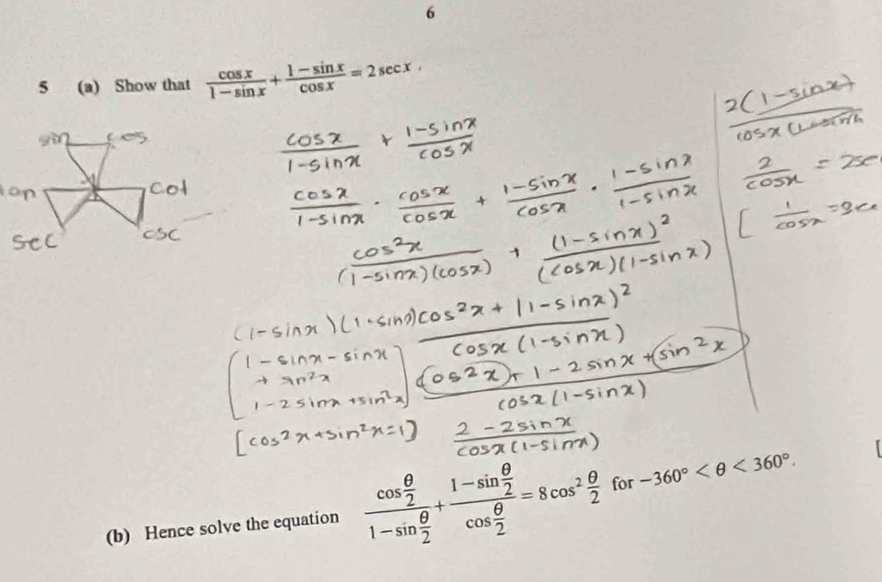 6
5 (a) Show that cos x / (1 − sin x) + (1 − sin x) / cos x = 2 sec x .
sin cos
tan cot
sec csc
cosx / (1-sinx) + (1-sinx) / cosx
cosx / (1-sinx) · cosx / cosx + (1-sinx) / cosx · (1-sinx) / (1-sinx)
cos²x / (1-sinx)(cosx) + (1-sinx)² / (cosx)(1-sinx)
(1-sinx)(1-sinx)
[1 - sinx - sinx
+ sin²x
1 - 2sinx + sin²x]
(cos²x + (1-sinx)²) / cosx(1-sinx)
(cos²x + 1 - 2sinx + sin²x) / cosx(1-sinx)
[cos²x + sin²x = 1]
(2 - 2sinx) / cosx(1-sinx)
2(1-sinx) / cosx(1-sinx)
2 / cosx = 2se
[ 1 / cosx =
(b) Hence solve the equation cos θ/2 / (1 − sin θ/2) + (1 − sin θ/2) / cos θ/2 = 8 cos² θ/2 for −360° < θ < 360°.
[